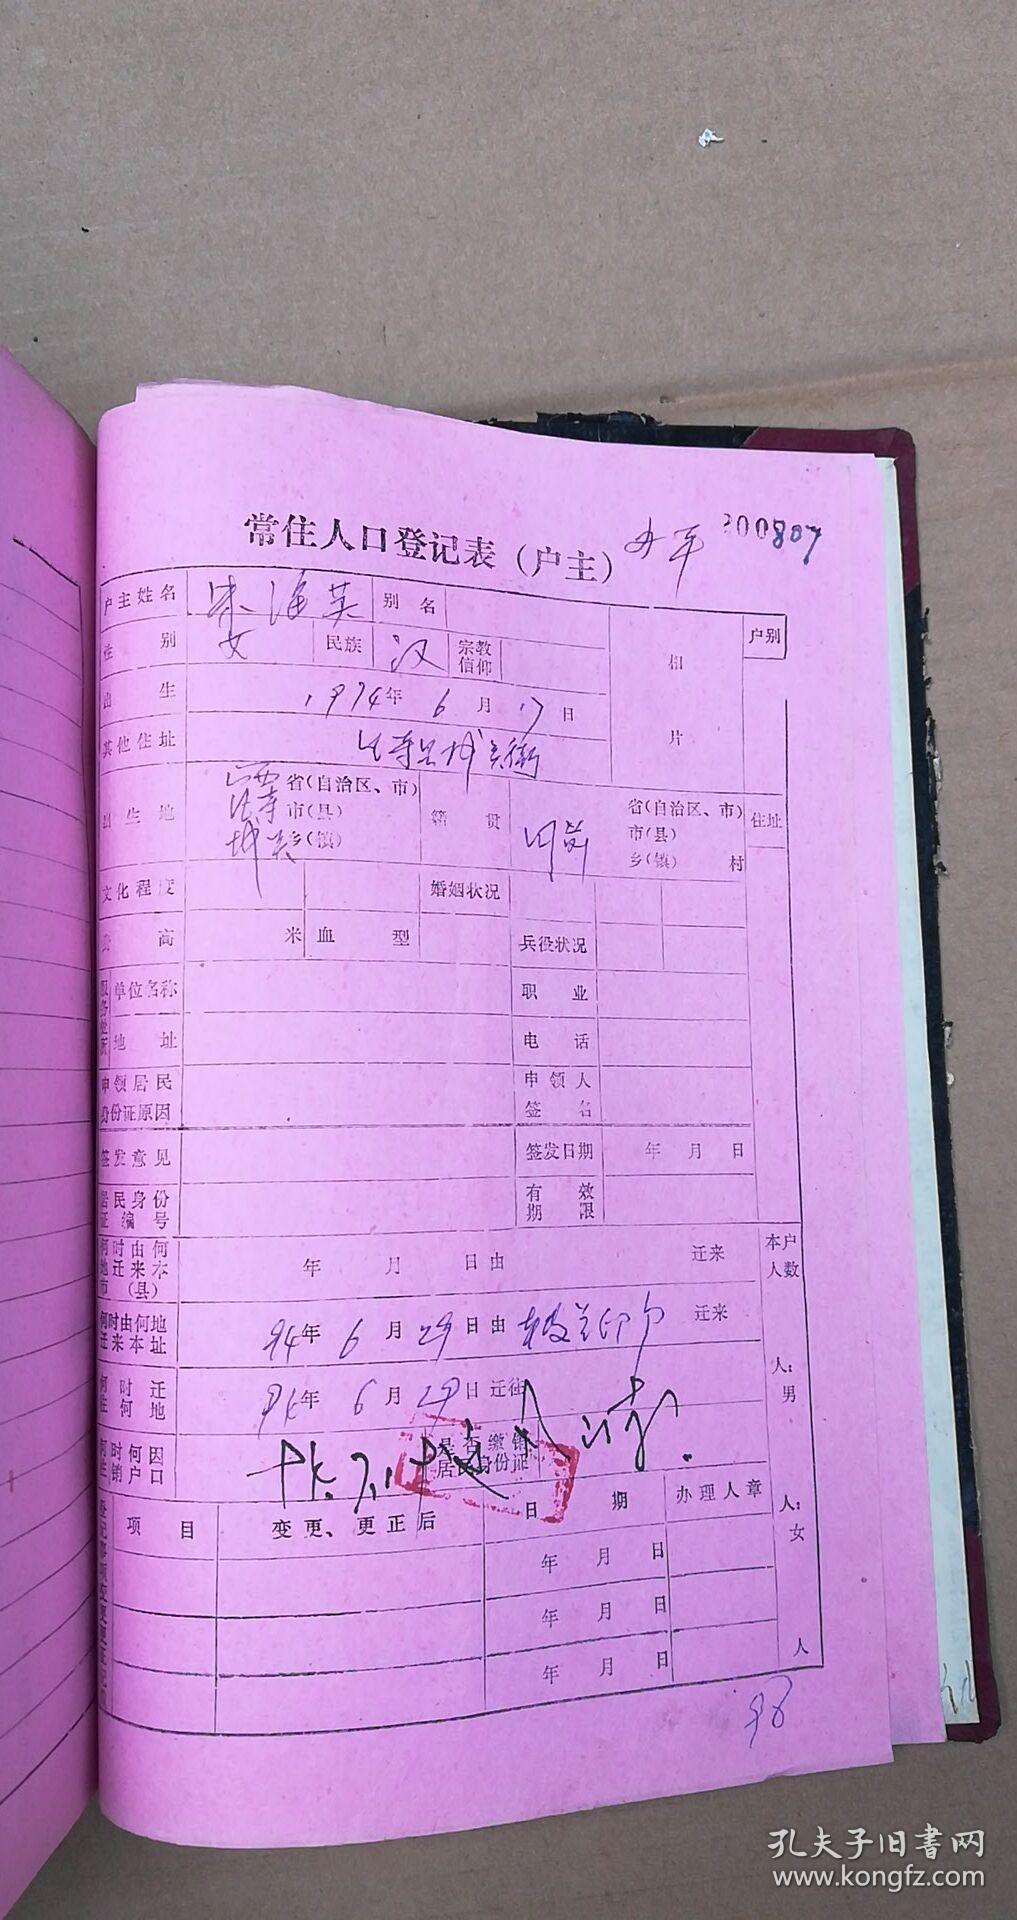 常住人口登记表（户主） 00807
户主姓名 朱海英 别名
性别 女 民族 汉 宗教信仰 相 户别
出生 1974年 6月 17日
其他住址 片
出生地 省（自治区、市） 籍贯 省（自治区、市） 住址
市（县） 市（县）
乡（镇） 乡（镇） 村
文化程度 婚姻状况
身高 米 血型 兵役状况
服务处所 单位名称 职业
地址 电话
申领居民身份证原因 申领人签名
签发意见 签发日期 年 月 日
居民身份证编号 有效期限
何时由何地迁来本市（县） 年 月 日由 迁来 本户人数
何时由何地迁来本址 94年 6月 29日由 迁来
何时迁往何地 年 6月 29日迁往 人：男
何时何因注销户口 是否缴销居民身份证
登记事项变更更正记载 项目 变更、更正后 日期 办理人章 人：女
年 月 日
年 月 日
年 月 日 人
98
孔夫子旧书网
www.kongfz.com